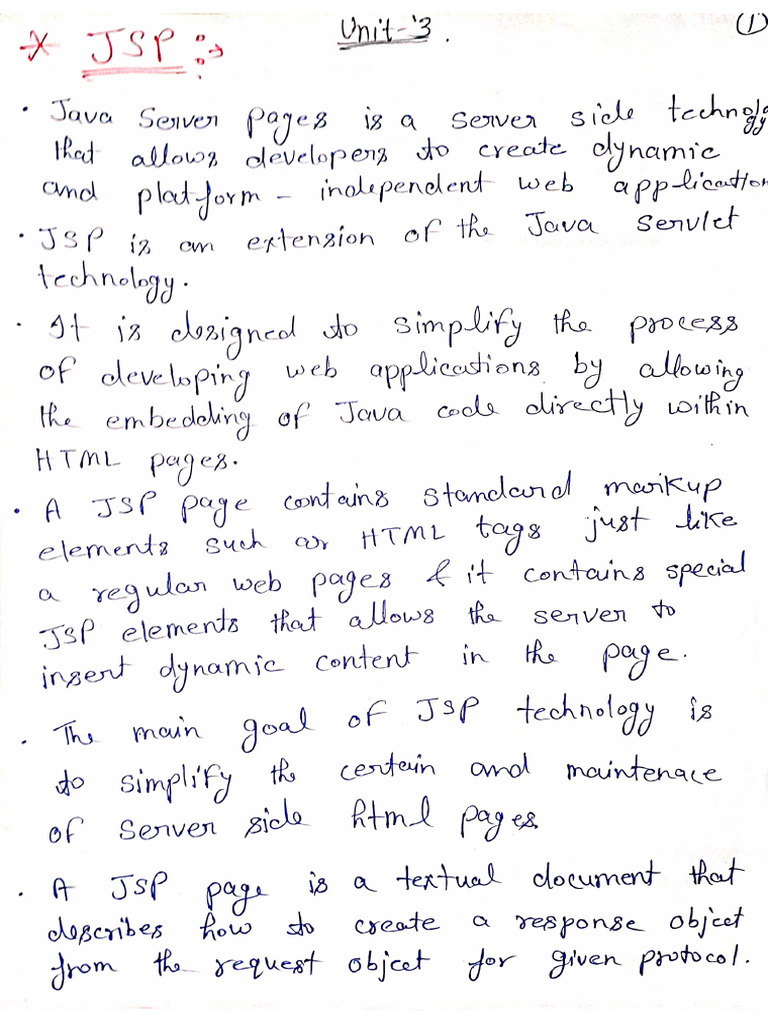 Unit-'3.
①
* JSP :→
• Java Server pages is a server side technology
that allows developers to create dynamic
and platform - independent web application
• JSP is an extension of the Java Servlet
technology.
• It is designed to simplify the process
of developing web applications by allowing
the embedding of Java code directly within
HTML pages.
• A JSP page contains standard markup
elements such as HTML tags just like
a regular web pages & it contains special
JSP elements that allows the server to
insert dynamic content in the page.
• The main goal of JSP technology is
to simplify the certain and maintenace
of server side html pages
• A JSP page is a textual document that
describes how to create a response object
from the request object for given protocol.